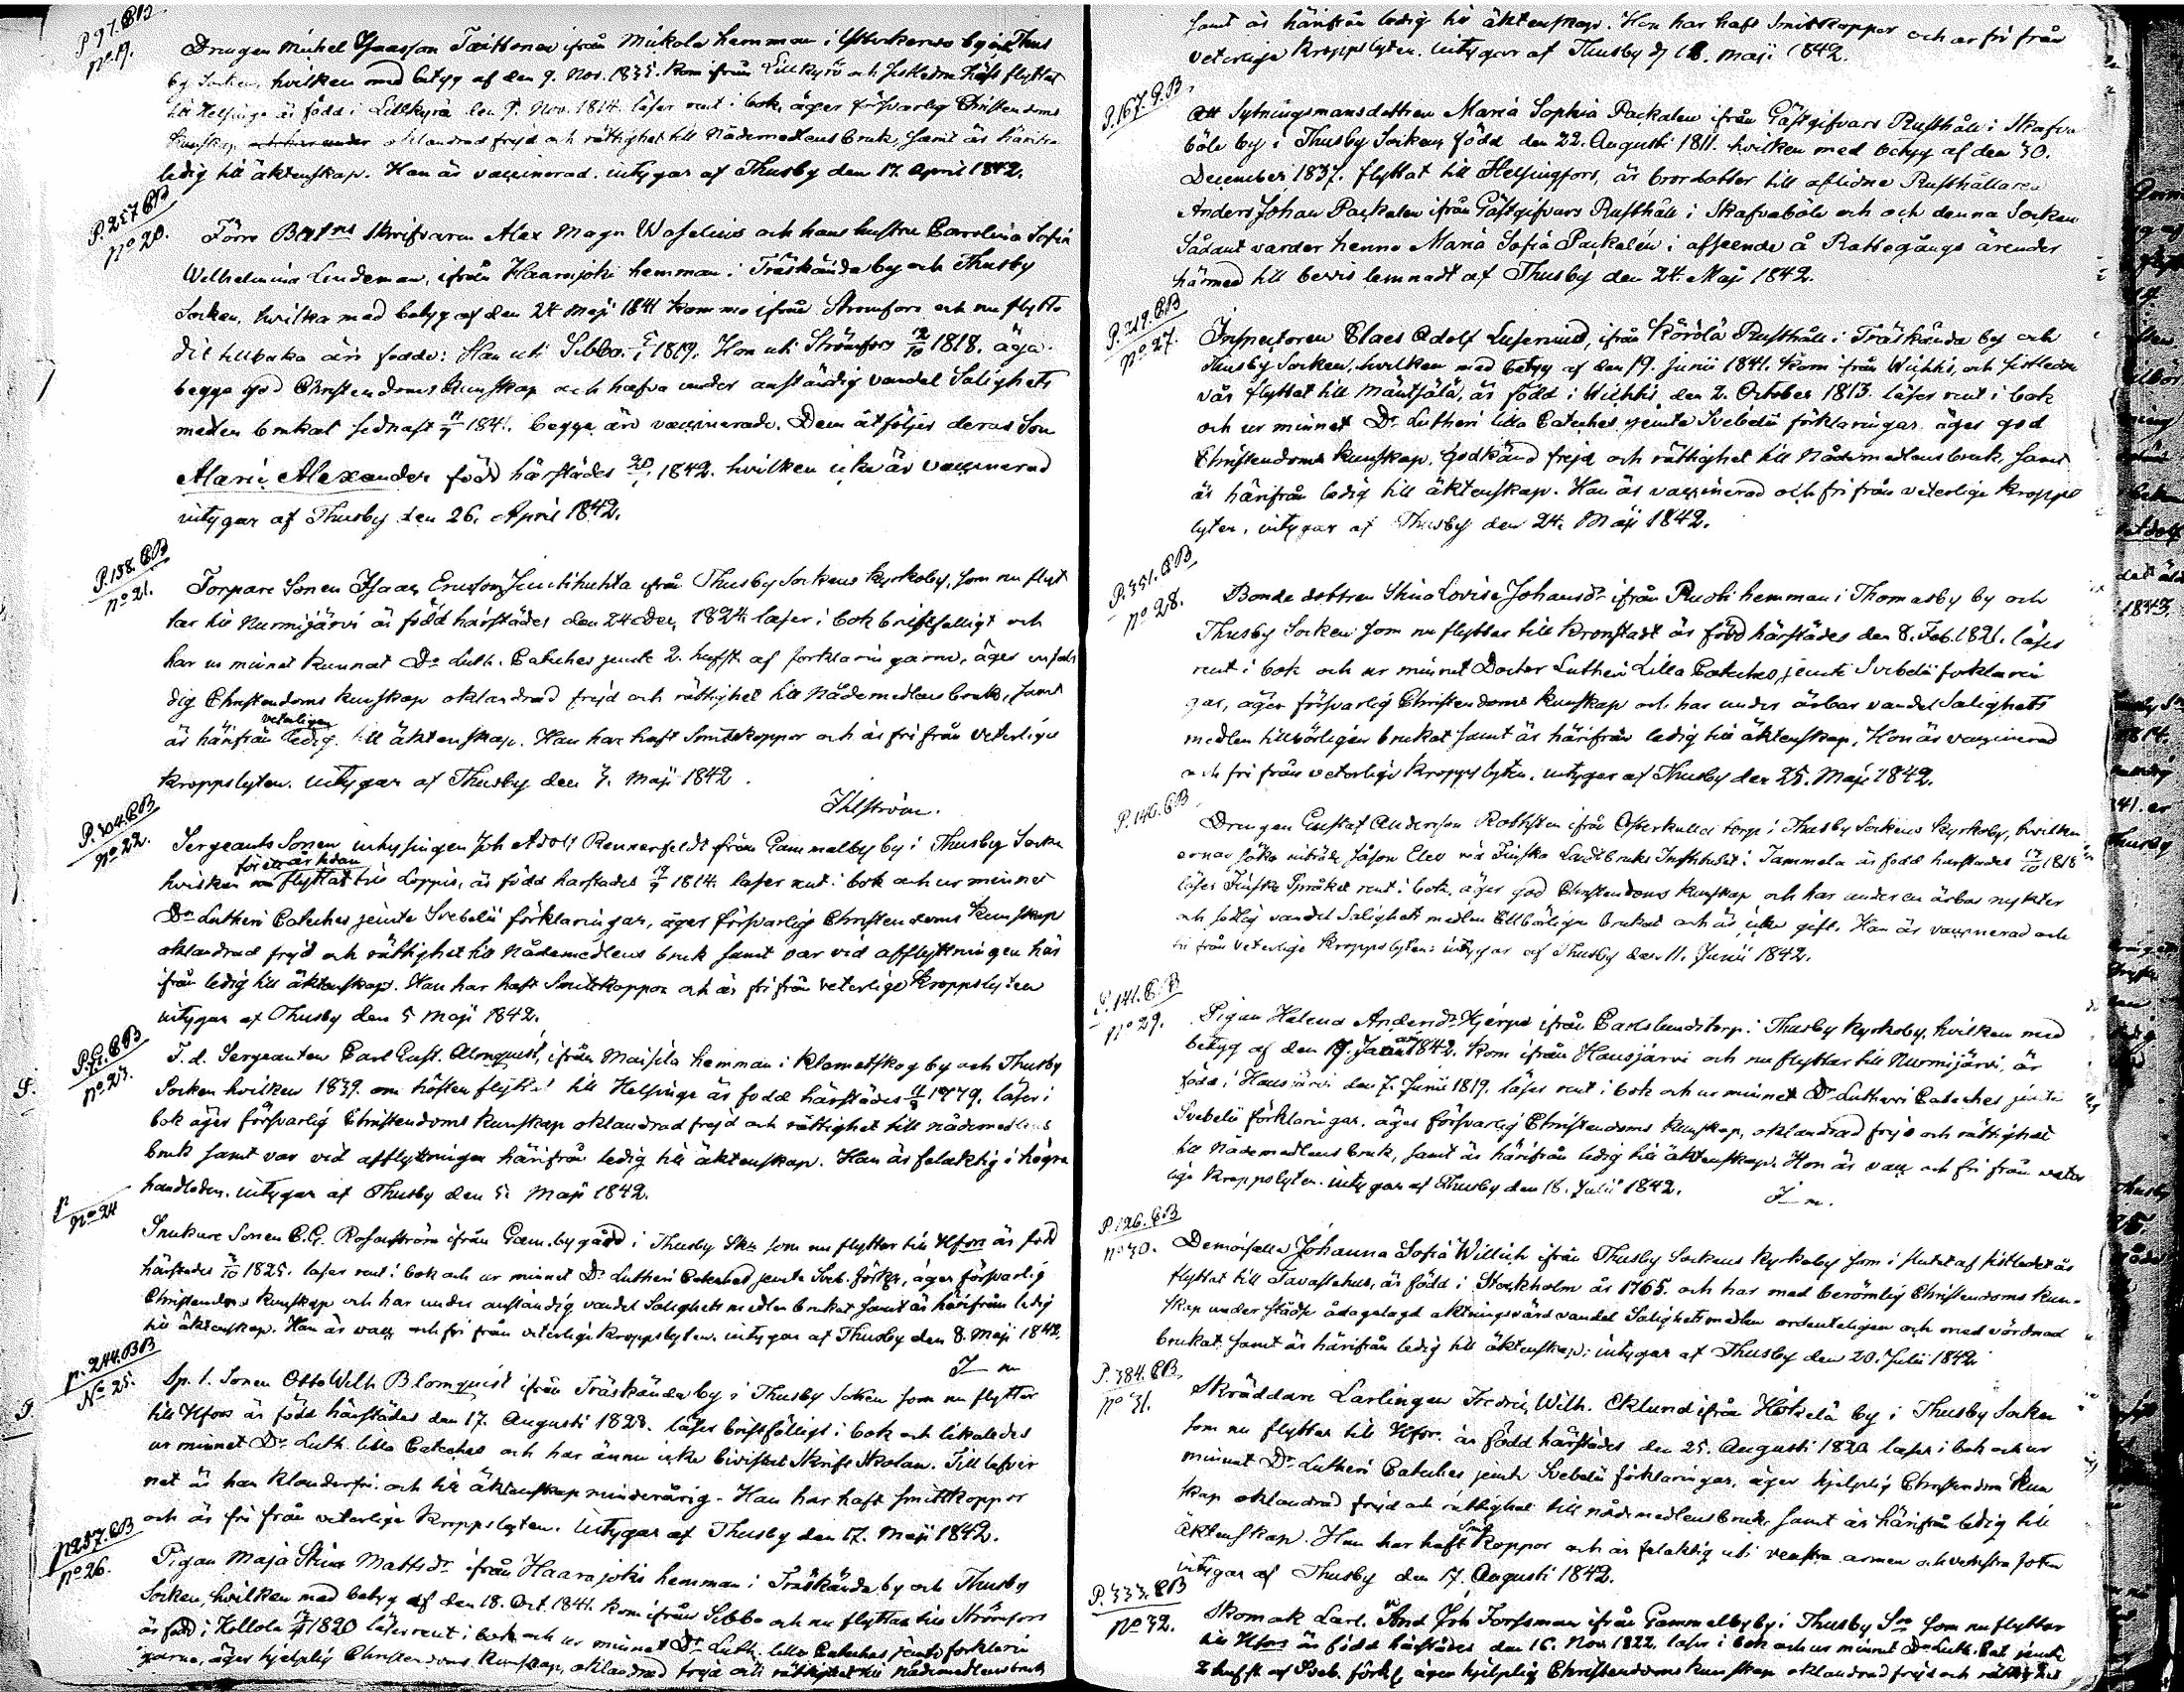 P 97. CB
no 19.
Drengen Michel Gustafson Taittonen ifrån Mickola hemman i Ytterkervo by och Thus
by Socken, hvilken med betyg af den 9. Nov. 1835. kom ifrån Lillkyro och sistledne höst flyttat
till Helsinge är född i Lillkyro den 9. Nov. 1814. läser rent i bok, äger försvarlig Christendoms
kunskap, oklandrad frejd och rättighet till Nådemedlens bruk, samt är härifrån
ledig till äktenskap. Han är vaccinerad. intygar af Thusby den 17. April 1842.
P. 257 CB
no 20.
Förre Bat:ns Skrifvaren Alex Magn Waselius och hans hustru Carolina Sofia
Wilhelmina Lindeman, ifrån Haarajoki hemman i Träskända by och Thusby
Socken, hvilka med betyg af den 24 Maji 1841 kommo ifrån Strömfors och nu flytta
dit tillbaka äro födde: Han uti Sibbo 1819. Hon uti Strömfors 1818. äga
begge god Christendoms Kunskap och hafva under anständig vandel Salighets
medlen brukat sednast 1841. begge äro vaccinerade. Dem åtföljer deras Son
Alaric Alexander född härstädes 1842. hvilken icke är vaccinerad
intygar af Thusby den 26. April 1842.
P. 138. CB
no 21.
Torpare Sonen Isaac Ericsson Juutihuhta ifrån Thusby Sockens Kyrkoby, som nu flyt
tar till Nurmijärvi är född härstädes den 24 Dec. 1824. läser i bok bristfälligt och
har ur minnet kunnat Dr Luth. Cateches jemte 2. hufst. af förklaringarne, äger enfal
dig Christendoms kunskap oklandrad frejd och rättighet till Nådemedlens bruk, samt
veterligen
är härifrån ledig till äktenskap. Han har haft Smittkoppor och är fri från veterliga
kroppslyten. intygar af Thusby den 3. Maji 1842.
Ihlström.
P. 304. CB
no 22.
Sergeants Sonen inhysingen Joh Adolf Rennerfeldt från Gammelby by i Thusby Socken
för ett år sedan
hvilken flyttat till Loppis, är född härstädes 1814. läser rent i bok och ur minnet
Dr Lutheri Cateches jemte Svebelii förklaringar, äger försvarlig Christendoms kunskap
oklandrad frejd och rättighet till Nådemedlens bruk samt var vid afflyttningen här
ifrån ledig till äktenskap. Han har haft Smittkoppor och är fri från veterliga kroppslyten
intygar af Thusby den 5 Maji 1842.
no 23.
F. d. Sergeanten Carl Gust. Almquist, ifrån Maisila hemman i Klametskog by och Thusby
Socken hvilken 1839. om hösten flyttat till Helsinge är född härstädes 1779. läser i
bok äger försvarlig Christendoms kunskap oklandrad frejd och rättighet till nådemedlens
bruk samt var vid afflyttningen härifrån ledig till äktenskap. Han är felaktig i högra
handleden. intygar af Thusby den 5. Maji 1842.
P
no 24
Snickare Sonen C. G. Rosenström ifrån Gam.by gård i Thusby Skn som nu flyttar till Hfors är född
härstädes 1825. läser rent i bok och ur minnet Dr Lutheri Cateches jemte Sveb. förkl., äger försvarlig
Christendoms kunskap och har under anständig vandel Salighets medlen brukat samt är härifrån ledig
till äktenskap. Han är vacc och fri från veterliga kroppslyten. intygar af Thusby den 8. Maji 1842.
I m
P. 244. CB
No 25.
Sp. l. Sonen Otto Wilh Blomquist ifrån Träskända by i Thusby Socken som nu flyttar
till Hfors är född härstädes den 17. Augusti 1828. läser bristfälligt i bok och likaledes
ur minnet Dr Luth. lilla Cateches och har ännu icke bivistat Skrift Skolan. Till lefver
net är han klanderfri och till äktenskap minderårig. Han har haft smittkoppor
och är fri från veterliga kroppslyten. Intygar af Thusby den 17. Maji 1842.
P. 257. CB
no 26.
Pigan Maja Stina Mattsdr ifrån Haarajoki hemman i Träskända by och Thusby
Socken, hvilken med betyg af den 18. Oct. 1841. kom ifrån Sibbo och nu flyttar till Strömfors
är född i Hollola 1820 läser rent i bok och ur minnet Dr Luth. lilla Cateches jemte förklarin
garne, äger hjelplig Christendoms kunskap, oklandrad frejd och rättighet till nådemedlens bruk
samt är härifrån ledig till äktenskap. Hon har haft Smittkoppor och är fri från
veterliga kroppslyten. intygar af Thusby d 18. Maji 1842.
P. 167. CB.
Att Sytningsmansdottren Maria Sophia Packalen ifrån Gästgifvars Rusthåll i Skafva
böle by i Thusby Socken, född den 22. Augusti 1811. hvilken med betyg af den 30.
December 1837. flyttat till Helsingfors, är brordotter till aflidne Rusthållaren
Anders Johan Packalen ifrån Gästgifvars Rusthåll i Skafvaböle och denna Socken
Sådant varder henne Maria Sofia Packalén i afseende å Rättegångs ärender
härmed till bevis lemnadt af Thusby den 24. Maji 1842.
P. 219. CB
no 27.
Inspectoren Claes Adolf Lusenius, ifrån Skörölä Rusthåll i Träskända by och
Thusby Socken, hvilken med betyg af den 19. Junii 1841. kom ifrån Wichtis, och sistledne
vår flyttat till Mäntsälä, är född i Wichtis den 2. October 1813. läser rent i bok
och ur minnet Dr Lutheri lilla Cateches jemte Svebelii förklaringar äger god
Christendoms kunskap. Godkänd frejd och rättighet till Nådemedlens bruk, samt
är härifrån ledig till äktenskap. Han är vaccinerad och fri från veterliga kropps
lyten, intygar af Thusby den 24. Maji 1842.
P. 351. CB
no 28.
Bonde dottren Stina Lovisa Johansdr ifrån Ruoki hemman i Thomasby by och
Thusby Socken som nu flyttar till Kronstadt är född härstädes den 8. Feb. 1821. läser
rent i bok och ur minnet Doctor Lutheri Lilla Cateches, jemte Svebelii förklarin
gar, äger försvarlig Christendoms kunskap och har under ärbar vandel Salighets
medlen tillbörligen brukat samt är härifrån ledig till äktenskap. Hon är vaccinerad
och fri från veterliga kroppslyten. intygar af Thusby den 25. Maji 1842.
P. 140. CB
Drengen Gustaf Andersson Rothsten ifrån Österkulla torp i Thusby Sockens Kyrkoby, hvilken
ernar söka inträde såsom Elev vid Finska Landtbruks Institutet i Tammela är född härstädes 1818
läser Finska Språket rent i bok, äger god Christendoms kunskap och har under en ärbar nykter
och sedlig vandel Salighets medlen tillbörligen brukat och är icke gift. Han är vaccinerad och
fri från veterliga kroppslyten: intygar af Thusby den 11. Junii 1842.
P. 141. CB
no 29.
Pigan Helena Andersdr Hjerpe ifrån Carlslunds torp i Thusby Kyrkoby, hvilken med
betyg af den 17. Januari 1842. kom ifrån Hausjärvi och nu flyttar till Nurmijärvi, är
född i Hausjärvi den 7. Junii 1819. läser rent i bok och ur minnet Dr Lutheri Cateches jemte
Svebelii förklaringar. äger försvarlig Christendoms kunskap, oklandrad frejd och rättighet
till Nådemedlens bruk, samt är härifrån ledig till äktenskap. Hon är vacc och fri från veter
liga kroppslyten. intygar af Thusby den 18. Julii 1842.
I m.
P. 126. CB
no 30.
Demoiselle Johanna Sofia Willich ifrån Thusby Sockens Kyrkoby som i slutet af sistledet år
flyttat till Tavastehus, är född i Stockholm år 1765. och har med berömlig Christendoms kun-
skap under städse ådagalagd aktningsvärd vandel Salighets medlen ordenteligen och med vördnad
brukat samt är härifrån ledig till äktenskap: intygar af Thusby den 20. Julii 1842.
P. 384. CB.
no 31.
Skräddare Lärlingen Fredric Wilh. Eklund ifrån Höckelä by i Thusby Socken
som nu flyttar till Hfors. är född härstädes den 25. Augusti 1820 läser i bok och ur
minnet Dr Lutheri Cateches jemte Svebelii förklaringar, äger hjelplig Christendoms kun
skap oklandrad frejd och rättighet till nådemedlens bruk samt är härifrån ledig till
Smitt
äktenskap. Han har haft koppor och är felaktig uti venstra armen och venstra foten
intygar af Thusby den 17. Augusti 1842.
P. 333. CB
No 32.
Skomak Lärl. And Joh Forssman ifrån Gammelby by i Thusby Sn som nu flyttar
till Hfors är född härstädes den 16. Nov. 1822. läser i bok och ur minnet Dr Luth. Cat jemte
2 hufst af Sveb. förkl, äger hjelplig Christendoms kunskap oklandrad frejd och rättighet